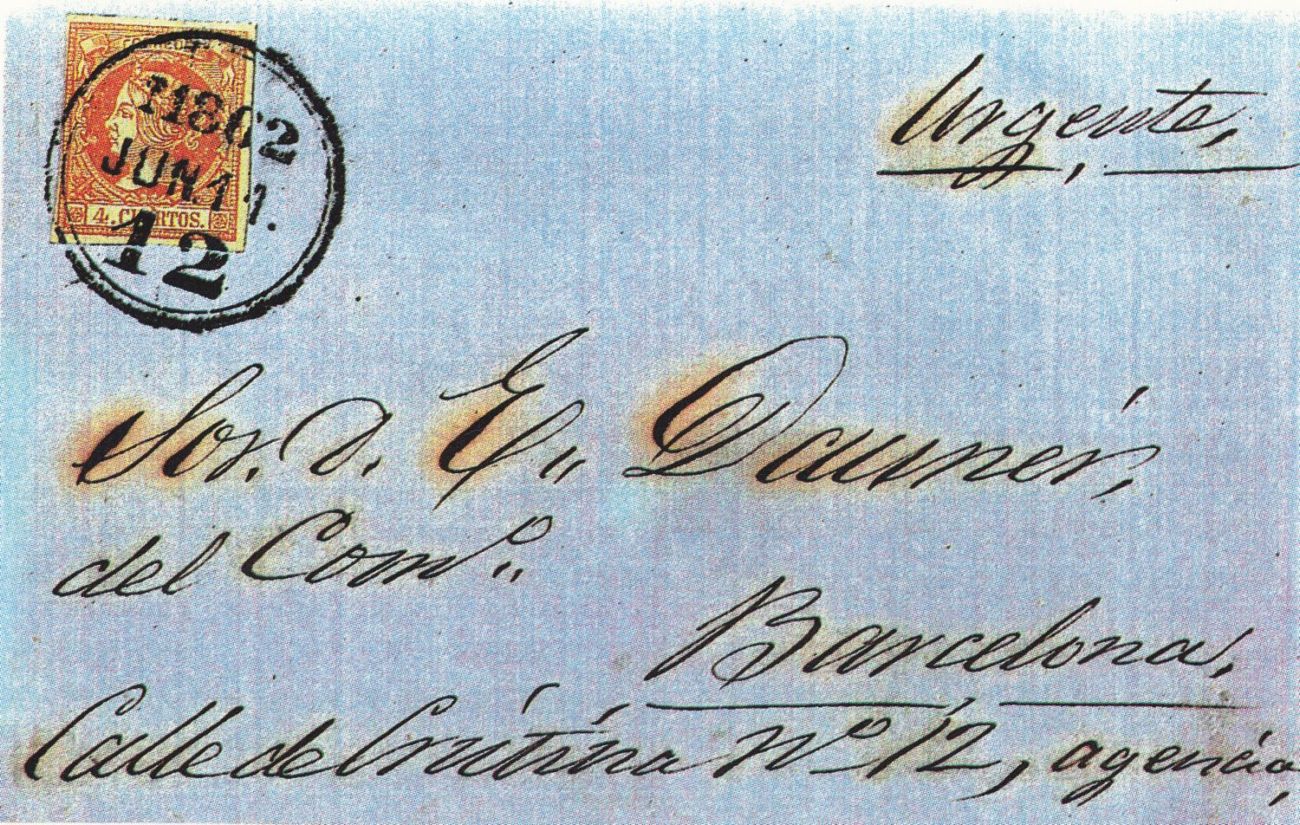 CORREOS
1862
JUN 11.
4. CUARTOS.
12
Urgente,
Sor. D. E,, Dauner,
del Com.º
Barcelona,
Calle de Cristina Nº 12, agencia,